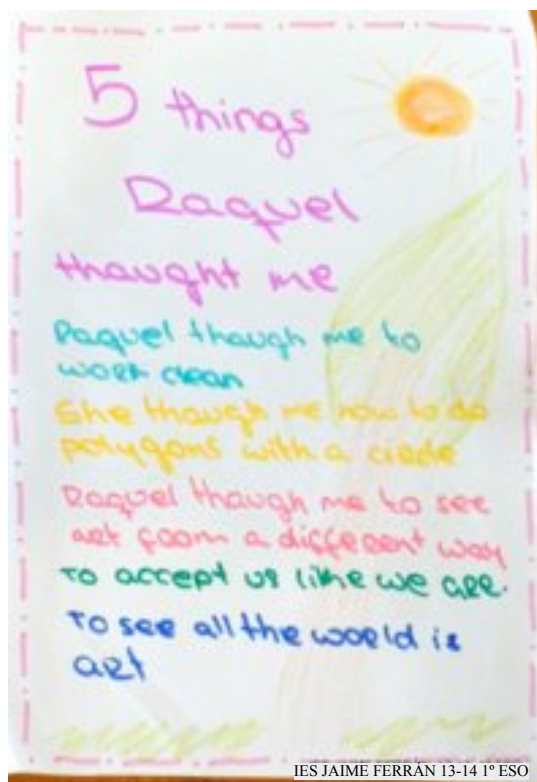 5 things
Raquel
thaught me
Raquel though me to
work clean
She though me how to do
polygons with a circle
Raquel though me to see
art from a different way
To accept us like we are.
To see all the world is
art
IES JAIME FERRÁN 13-14 1º ESO